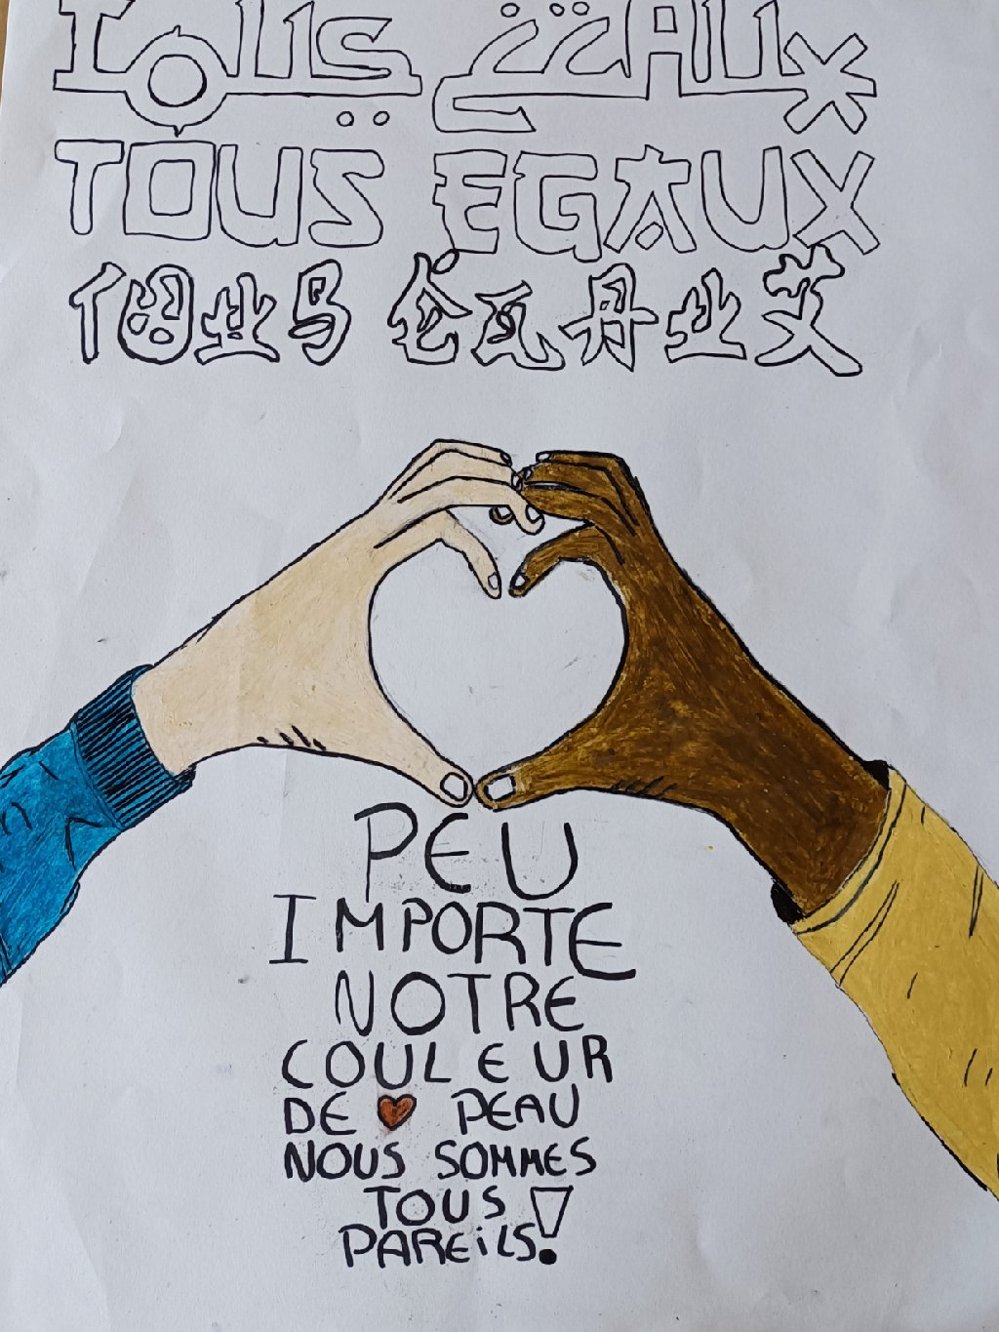 TOUS EGAUX
TOUS EGAUX
PEU
IMPORTE
NOTRE
COULEUR
DE ❤ PEAU
NOUS SOMMES
TOUS
PAREiLS!